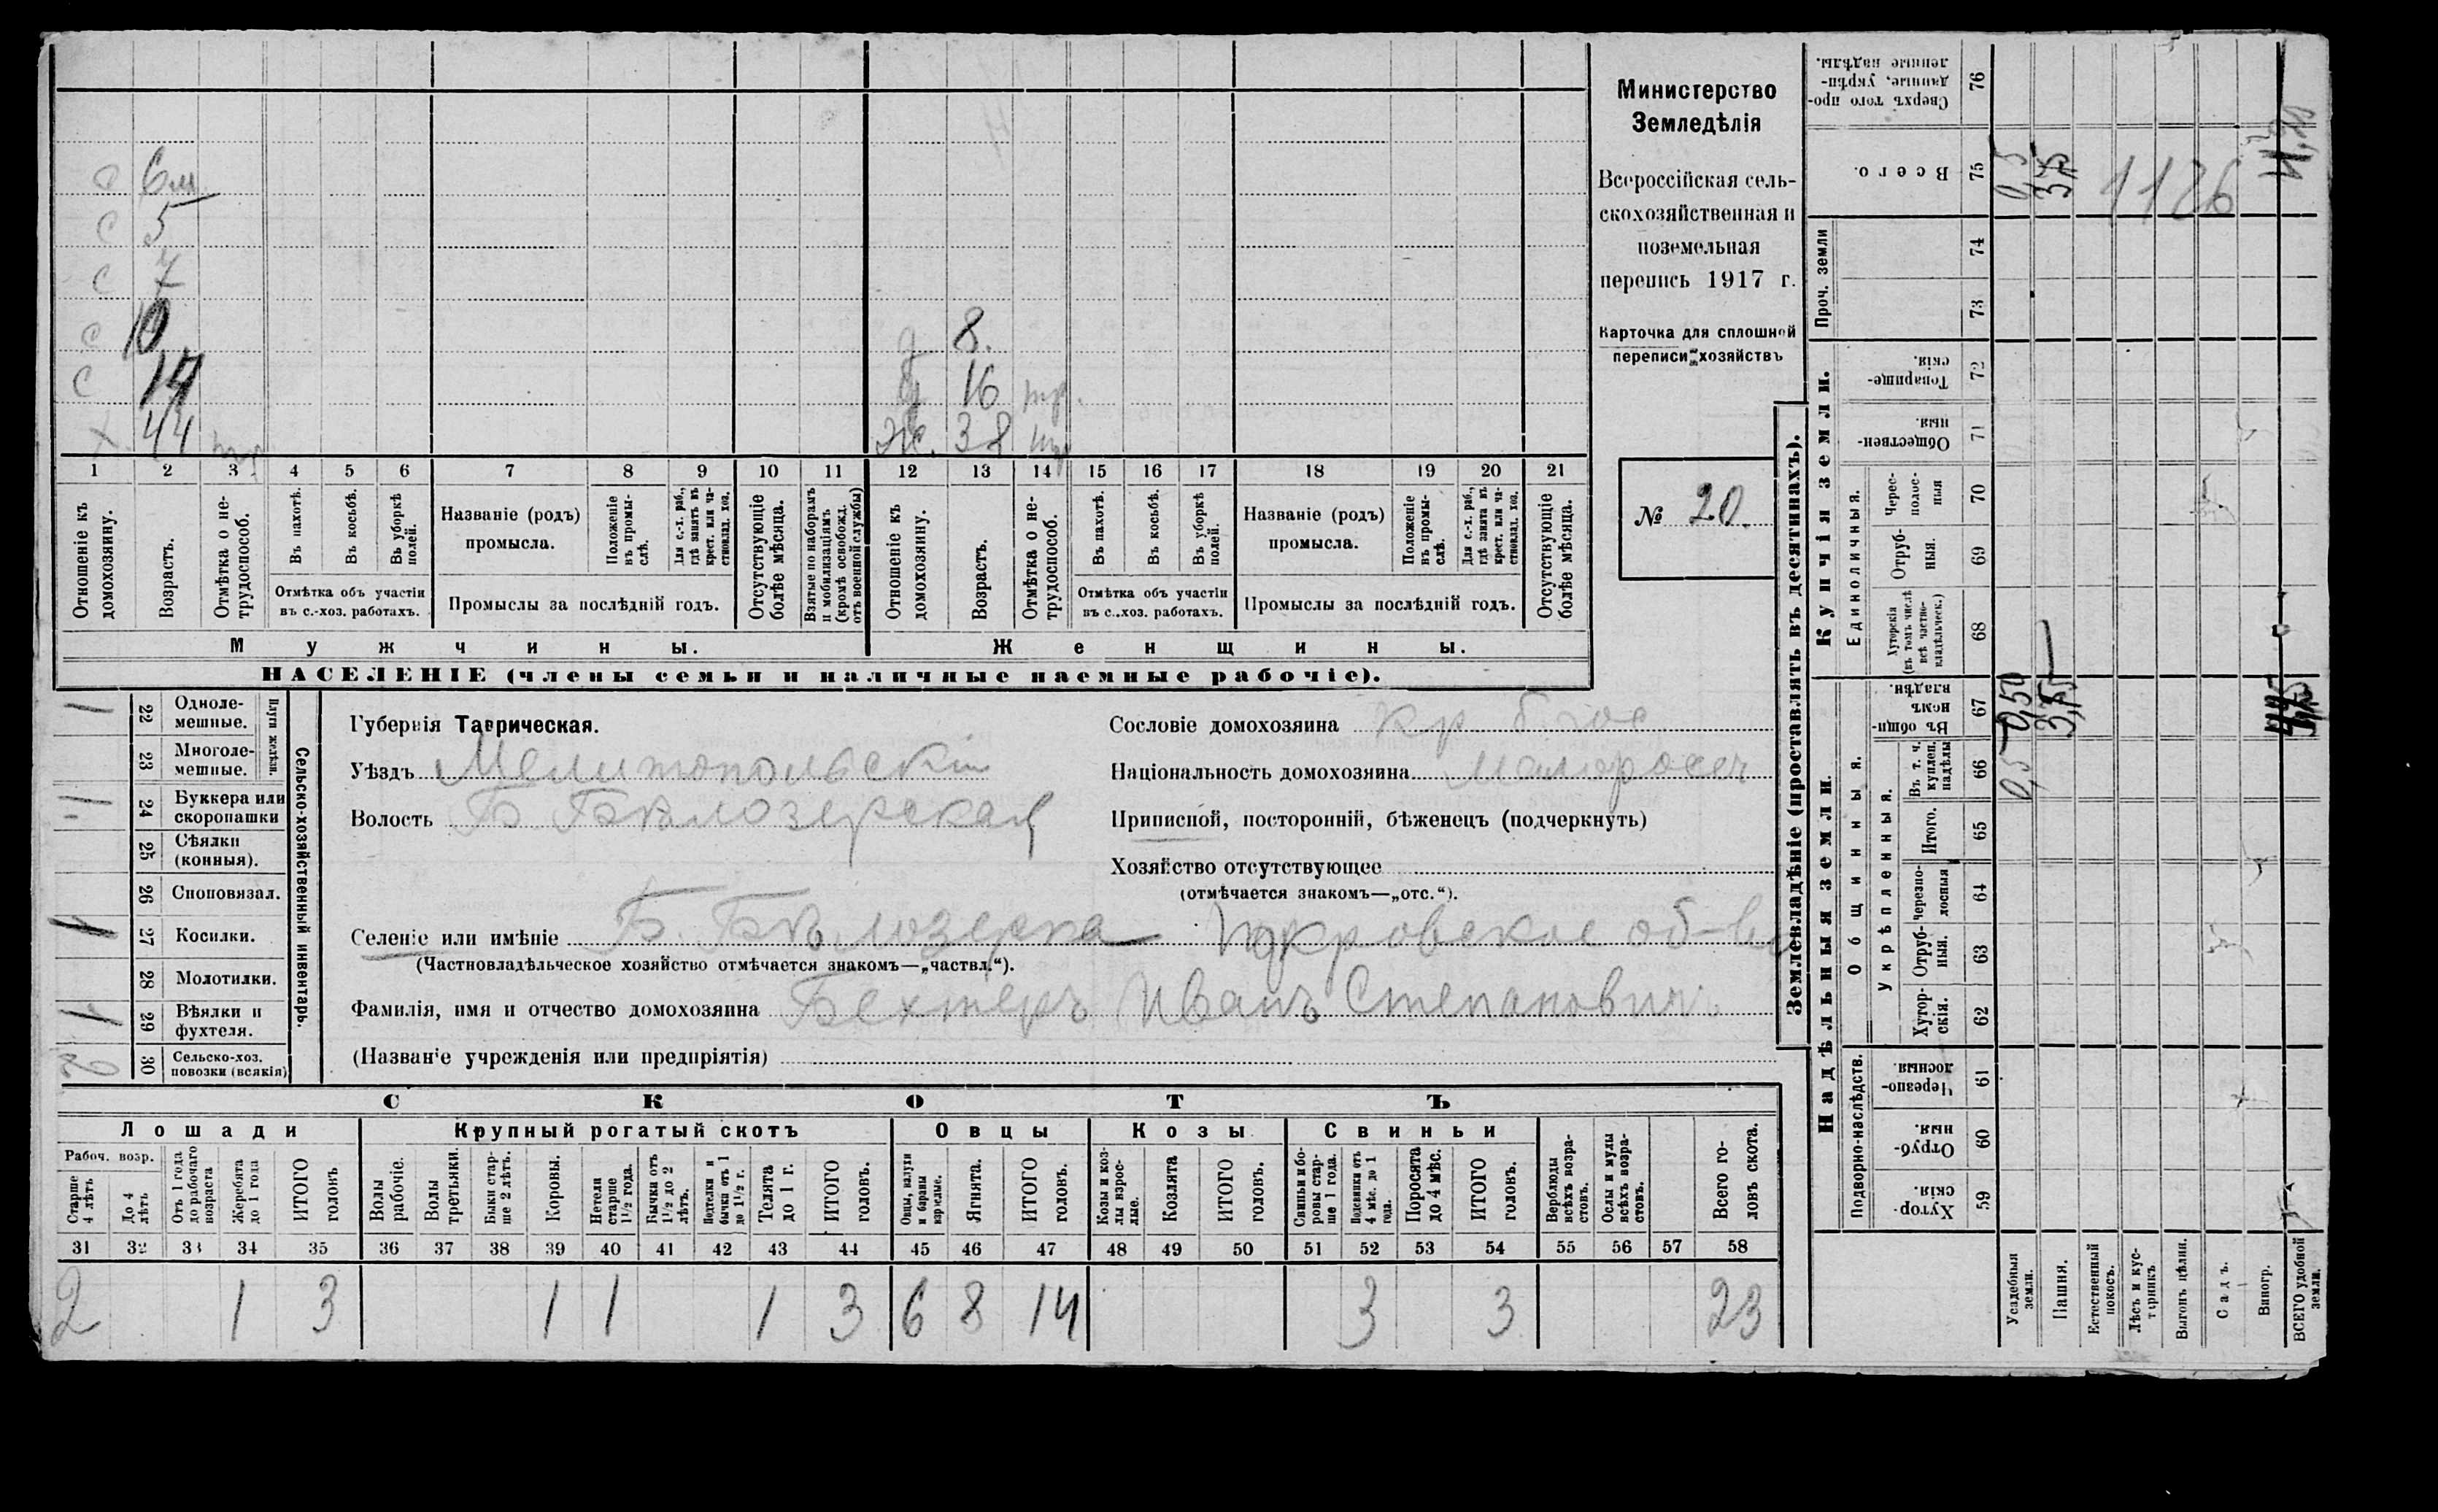 6м
с 5
с 7
с 10
с 14
х 44 тр
д 8.
д 16 тр.
ж. 38 тр
1 2 3 4 5 6 7 8 9 10 11 12 13 14 15 16 17 18 19 20 21
Отношеніе къ домохозяину.
Возрастъ.
Отмѣтка о не-трудоспособ.
Въ пахотѣ.
Въ косьбѣ.
Въ уборкѣ полей.
Отмѣтка объ участіи
въ с.-хоз. работахъ.
Названіе (родъ)
промысла.
Положеніе въ промы-слѣ.
Для с.-х. раб., гдѣ занятъ въ крест. или ча-стновлад. хоз.
Промыслы за послѣдній годъ.
Отсутствующіе болѣе мѣсяца.
Взятые по наборамъ и мобилизаціямъ (кромѣ освобожд. отъ военной службы)
Отношеніе къ домохозяину.
Возрастъ.
Отмѣтка о не-трудоспособ.
Въ пахотѣ.
Въ косьбѣ.
Въ уборкѣ полей.
Отмѣтка объ участіи
въ с.-хоз. работахъ.
Названіе (родъ)
промысла.
Положеніе въ промы-слѣ.
Для с.-х. раб., гдѣ занята въ крест. или ча-стновлад. хоз.
Промыслы за послѣдній годъ.
Отсутствующіе болѣе мѣсяца.
Мужчины.
Женщины.
НАСЕЛЕНІЕ (члены семьи и наличные наемные рабочіе).
Министерство
Земледѣлія
Всероссійская сель-
скохозяйственная и
поземельная
перепись 1917 г.
Карточка для сплошной
переписи хозяйствъ
№ 20.
1 22 Одноле-мешные.
23 Многоле-мешные.
Плуги желѣзн.
24 Буккера или скоропашки
25 Сѣялки (конныя).
26 Сноповязал.
1 27 Косилки.
28 Молотилки.
1 29 Вѣялки и фухтеля.
2 30 Сельско-хоз. повозки (всякія)
Сельско-хозяйственный инвентарь.
Губернія Таврическая.
Уѣздъ Мелитопольскій
Волость Б. Бѣлозерская
Селеніе или имѣніе Б. Бѣлозерка Покровское об-во
(Частновладѣльческое хозяйство отмѣчается знакомъ—„частвл.“).
Фамилія, имя и отчество домохозяина Бехтеръ Иванъ Степановичъ
(Названіе учрежденія или предпріятія)
Сословіе домохозяина кр.
Національность домохозяина малороссъ
Приписной, посторонній, бѣженецъ (подчеркнуть)
Хозяйство отсутствующее
(отмѣчается знакомъ—„отс.“).
СКОТЪ
Лошади
Крупный рогатый скотъ
Овцы
Козы
Свиньи
Рабоч. возр.
Старше 4 лѣтъ
До 4 лѣтъ
Отъ 1 года до рабочаго возраста
Жеребята до 1 года
ИТОГО головъ
Волы рабочіе.
Волы третьяки.
Быки стар-ше 2 лѣтъ.
Коровы.
Нетели старше 1½ года.
Бычки отъ 1½ до 2 лѣтъ.
Подтелки и бычки отъ 1 до 1½ г.
Телята до 1 г.
ИТОГО головъ.
Овцы, валухи и бараны взрослые.
Ягнята.
ИТОГО головъ.
Козы и коз-лы взрос-лые.
Козлята
ИТОГО головъ.
Свиньи и бо-ровы стар-ше 1 года.
Подсвинки отъ 4 мѣс. до 1 года.
Поросята до 4 мѣс.
ИТОГО головъ.
Верблюды всѣхъ возра-стовъ.
Ослы и мулы всѣхъ возра-стовъ.
Всего го-ловъ скота.
31 32 33 34 35 36 37 38 39 40 41 42 43 44 45 46 47 48 49 50 51 52 53 54 55 56 57 58
2 1 3 1 1 1 3 6 8 14 3 3 23
Землевладѣніе (проставлять въ десятинахъ).
Надѣльныя земли.
Купчія земли.
Проч. земли
Подворно-наслѣдств.
Общинныя.
Укрѣпленныя.
Единоличныя.
Сверхъ того про-данные, укрѣп-ленные надѣлы. 76
Всего. 75 0,5 3,75 1126
74
73
Товарище-скія. 72
Обществен-ныя. 71
Черес-полос-ныя 70
Отруб-ныя. 69
Хуторскія (въ томъ числѣ всѣ частно-владѣльческ.) 68
Въ общин-номъ владѣн. 67 0,50 3,75
Въ т. ч. куплен. надѣлы 66 0,5
Итого. 65
Черезпо-лосныя 64
Отруб-ныя. 63
Хутор-скія. 62
Черезпо-лосныя. 61
Отруб-ныя. 60
Хутор-скія. 59
Усадебныя земли.
Пашня.
Естественный покосъ.
Лѣсъ и кус-тарникъ
Выгонъ цѣлин.
Садъ.
Виногр.
ВСЕГО удобной земли.